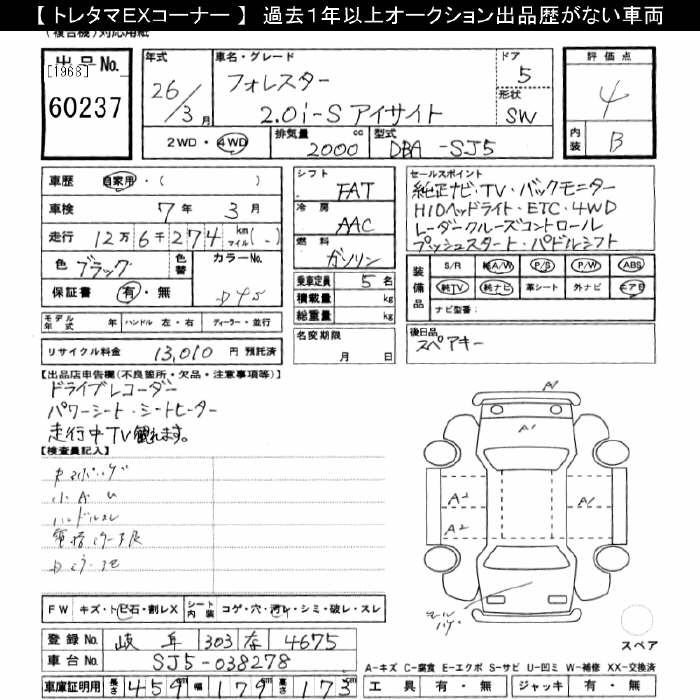 【 トレタマEXコーナー 】 過去1年以上オークション出品歴がない車両
(複合機)対応用紙
出品No. [1968] 60237
年式 26/3月
車名・グレード フォレスター 2.0i-S アイサイト
ドア 5
形状 SW
評価点 4
内装 B
2WD・4WD 排気量 2000 cc 型式 DBA-SJ5
車歴 自家用・( )
車検 7年 3月
走行 12万6千274 km マイル( )
色 ブラック 色替 カラーNo.
保証書 有・無
モデル年式 年 ハンドル 左・右 ディーラー・並行
リサイクル料金 13,010 円 預託済
シフト FAT
冷房 AAC
燃料 ガソリン
乗車定員 5 名
積載量 kg
総重量 kg
名変期限 月 日
セールスポイント
純正ナビ・TV・バックモニター
HIDヘッドライト・ETC・4WD
レーダークルーズコントロール
プッシュスタート・パドルシフト
装備品 S/R 純A/W P/S P/W ABS
純TV 純ナビ 革シート 外ナビ エアB
ナビ型番:
後日品
スペアキー
【出品店申告欄(不良箇所・欠品・注意事項等)】
ドライブレコーダー
パワーシート・シートヒーター
走行中TV観れます。
【検査員記入】
小AU
ハンドルスレ
A1
A1
A2 A1
A2
スペア
FW キズ・トビ石・割レX シート内装 コゲ・穴・汚レ・シミ・破レ・スレ
登録No. 岐阜 303 4675
車台No. SJ5-038278
車庫証明用 長さ 459 cm 幅 179 cm 高さ 173 cm
A-キズ C-腐食 E-エクボ S-サビ U-凹ミ W-補修 XX-交換済
工具 有・無 ジャッキ 有・無